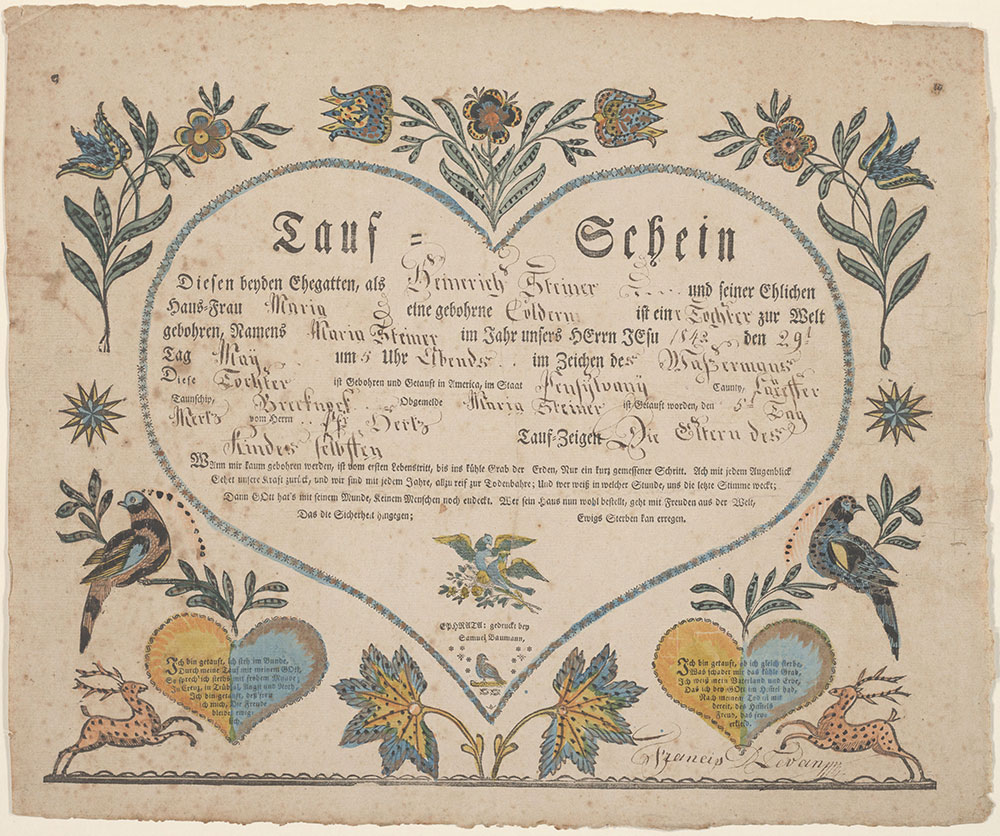 Tauf = Schein
Diesen beyden Ehegatten, als Heinerich Steiner und seiner Ehlichen
Haus-Frau Maria eine gebohrne Cöldern ist eine Tochter zur Welt
gebohren, Namens Maria Steiner im Jahr unsers HErrn JEsu 1842 den 29t
Tag May um 5 Uhr Abends im Zeichen des Waßermans
Diese Tochter ist Gebohren und Getauft in America, im Staat Pensylvany Caunty,
Taunschip, Brecknock Obgemelde Maria Steiner ist Getauft worden, den 5ten Tag
Mertz vom Herrn Pfr Hertz Tauf-Zeigen Die Eltern des
Kindes selbsten
Wann wir kaum gebohren werden, ist vom ersten Lebenstritt, bis ins kühle Grab der Erden, Nur ein kurz gemessener Schritt. Ach mit jedem Augenblick
Gehet unsere Kraft zurück, und wir sind mit jedem Jahre, allzu reif zur Todenbahre; Und wer weiß in welcher Stunde, uns die letzte Stimme weckt;
Dann GOtt hat's mit seinem Munde, Keinem Menschen noch endeckt. Wer sein Haus nun wohl bestellt, geht mit Freuden aus der Welt,
Das die Sicherheit hingegen; Ewigs Sterben kan erregen.
EPHRATA: gedruckt bey
Samuel Baumann,
Ich bin getauft, ich steh im Bunde,
Durch meine Tauf mit meinem GOtt,
So sprech ich stets mit frohem Munde;
In Creuz, in Trübsal, Angst und Noth
Ich bin getauft, des freu
ich mich, Die Freude
bleibet ewig-
lich.
Ich bin getauft, ob ich gleich sterbe,
Was schadet mir das kühle Grab,
Ich weiß mein Vaterland und Erbe,
Das ich bey GOtt im Himmel hab,
Nach meinem Tod ist mir
bereit, des Himmels
Freud, das
Francis Levan